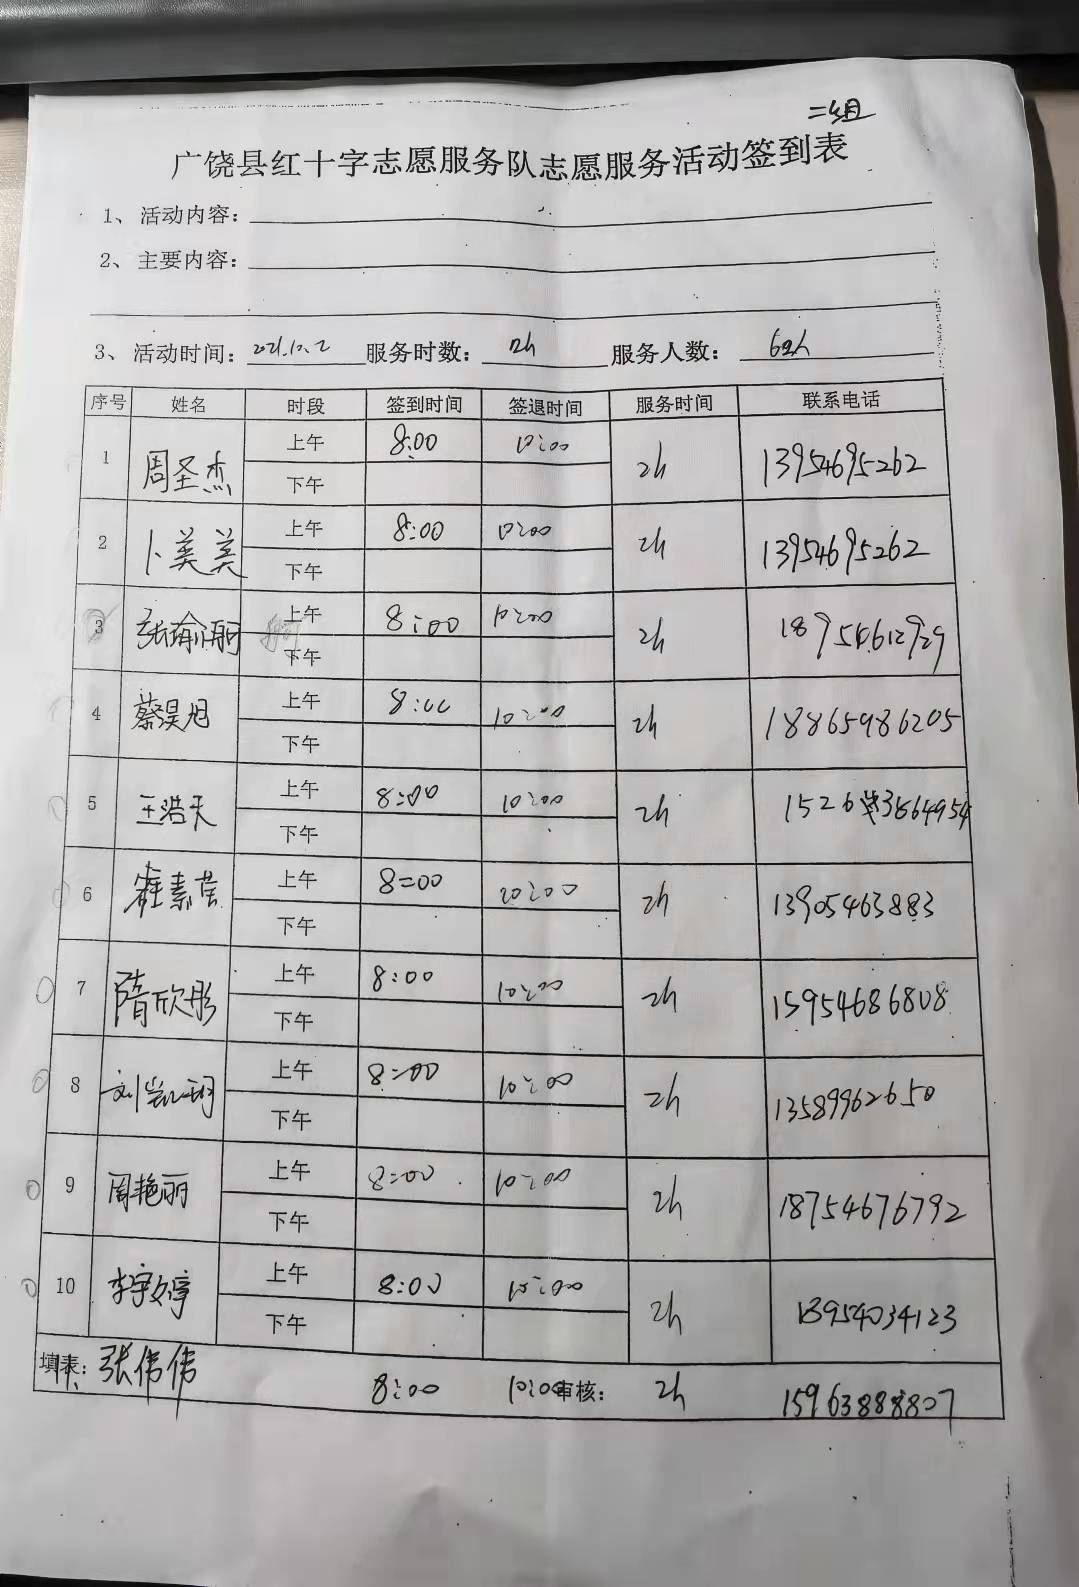 二组
广饶县红十字志愿服务队志愿服务活动签到表
1、活动内容：
2、主要内容：
3、活动时间：2021.10.2 服务时数：2h 服务人数：
序号 姓名 时段 签到时间 签退时间 服务时间 联系电话
1 周圣杰 上午 8:00 10:00 2h 13954695262
下午
2 卜美美 上午 8:00 10:00 2h 13954695262
下午
3 上午 8:00 10:00 2h
下午
4 蔡昊旭 上午 8:00 10:00 2h 18865986205
下午
5 王浩天 上午 8:00 10:00 2h
下午
6 崔素莹 上午 8:00 10:00 2h 13905463883
下午
7 隋欣彤 上午 8:00 10:00 2h 15954686808
下午
8 上午 8:00 10:00 2h 13589962650
下午
9 周艳丽 上午 8:00 10:00 2h 18754676792
下午
10 李宇婷 上午 8:00 10:00 2h 13954034123
下午
填表：张伟伟 8:00 10:00 审核： 2h 15963888807